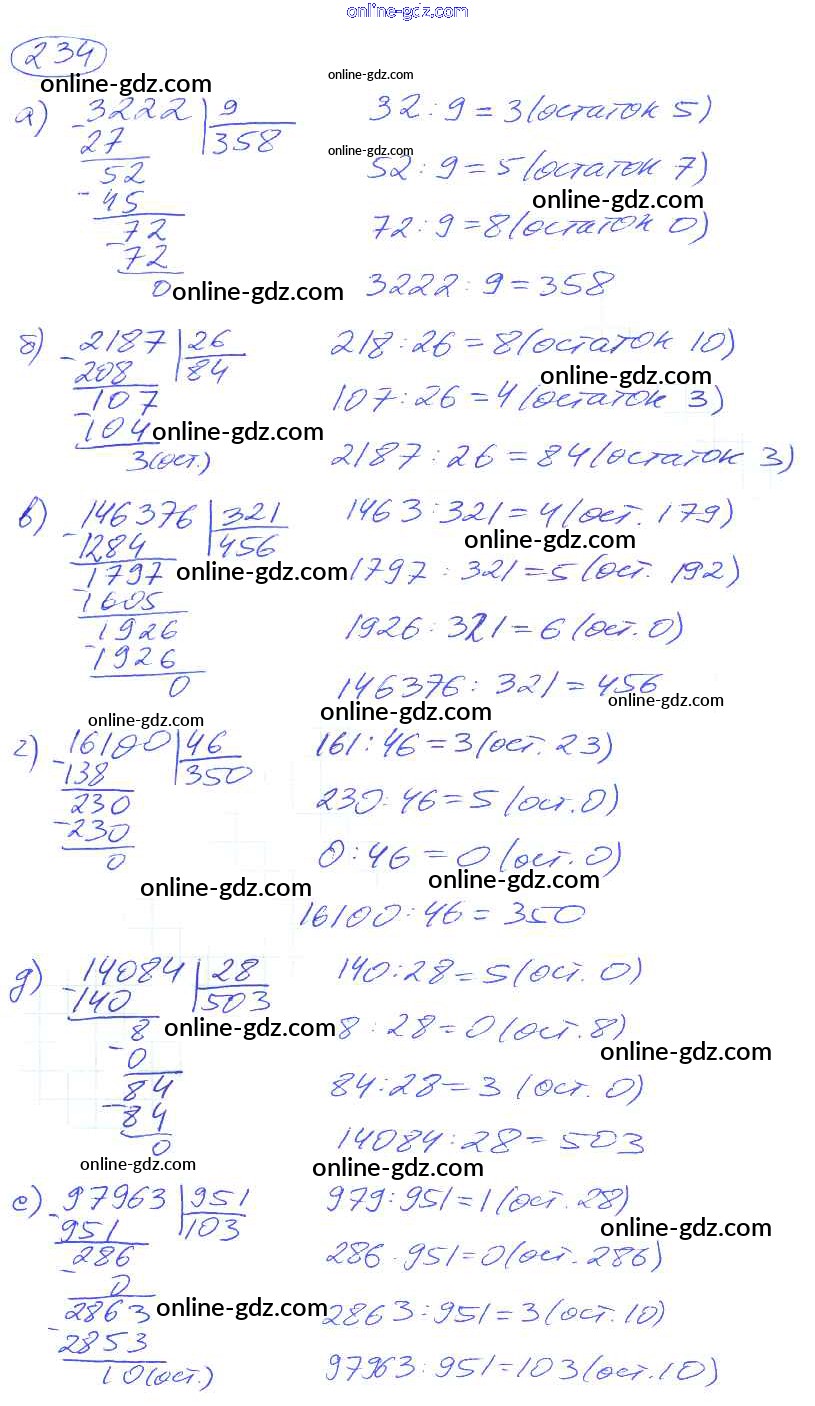 online-gdz.com
234
online-gdz.com
online-gdz.com
а) 3222 | 9 32 : 9 = 3 (остаток 5)
- 27 358
online-gdz.com
52 52 : 9 = 5 (остаток 7)
- 45
online-gdz.com
72 72 : 9 = 8 (остаток 0)
- 72
0 3222 : 9 = 358
online-gdz.com
б) 2187 | 26 218 : 26 = 8 (остаток 10)
- 208 84
online-gdz.com
107 107 : 26 = 4 (остаток 3)
- 104
online-gdz.com
3 (ост.) 2187 : 26 = 84 (остаток 3)
в) 146376 | 321 1463 : 321 = 4 (ост. 179)
- 1284 456
online-gdz.com
1797 1797 : 321 = 5 (ост. 192)
online-gdz.com
- 1605
1926 1926 : 321 = 6 (ост. 0)
- 1926
0 146376 : 321 = 456
online-gdz.com
online-gdz.com
online-gdz.com
г) 16100 | 46 161 : 46 = 3 (ост. 23)
- 138 350
230 230 : 46 = 5 (ост. 0)
- 230
0 0 : 46 = 0 (ост. 0)
online-gdz.com
online-gdz.com
16100 : 46 = 350
д) 14084 | 28 140 : 28 = 5 (ост. 0)
- 140 503
8 8 : 28 = 0 (ост. 8)
online-gdz.com
online-gdz.com
- 0
84 84 : 28 = 3 (ост. 0)
- 84
0 14084 : 28 = 503
online-gdz.com
online-gdz.com
е) 97963 | 951 979 : 951 = 1 (ост. 28)
- 951 103
online-gdz.com
286 286 : 951 = 0 (ост. 286)
- 0
2863 2863 : 951 = 3 (ост. 10)
online-gdz.com
- 2853
10 (ост.) 97963 : 951 = 103 (ост. 10)